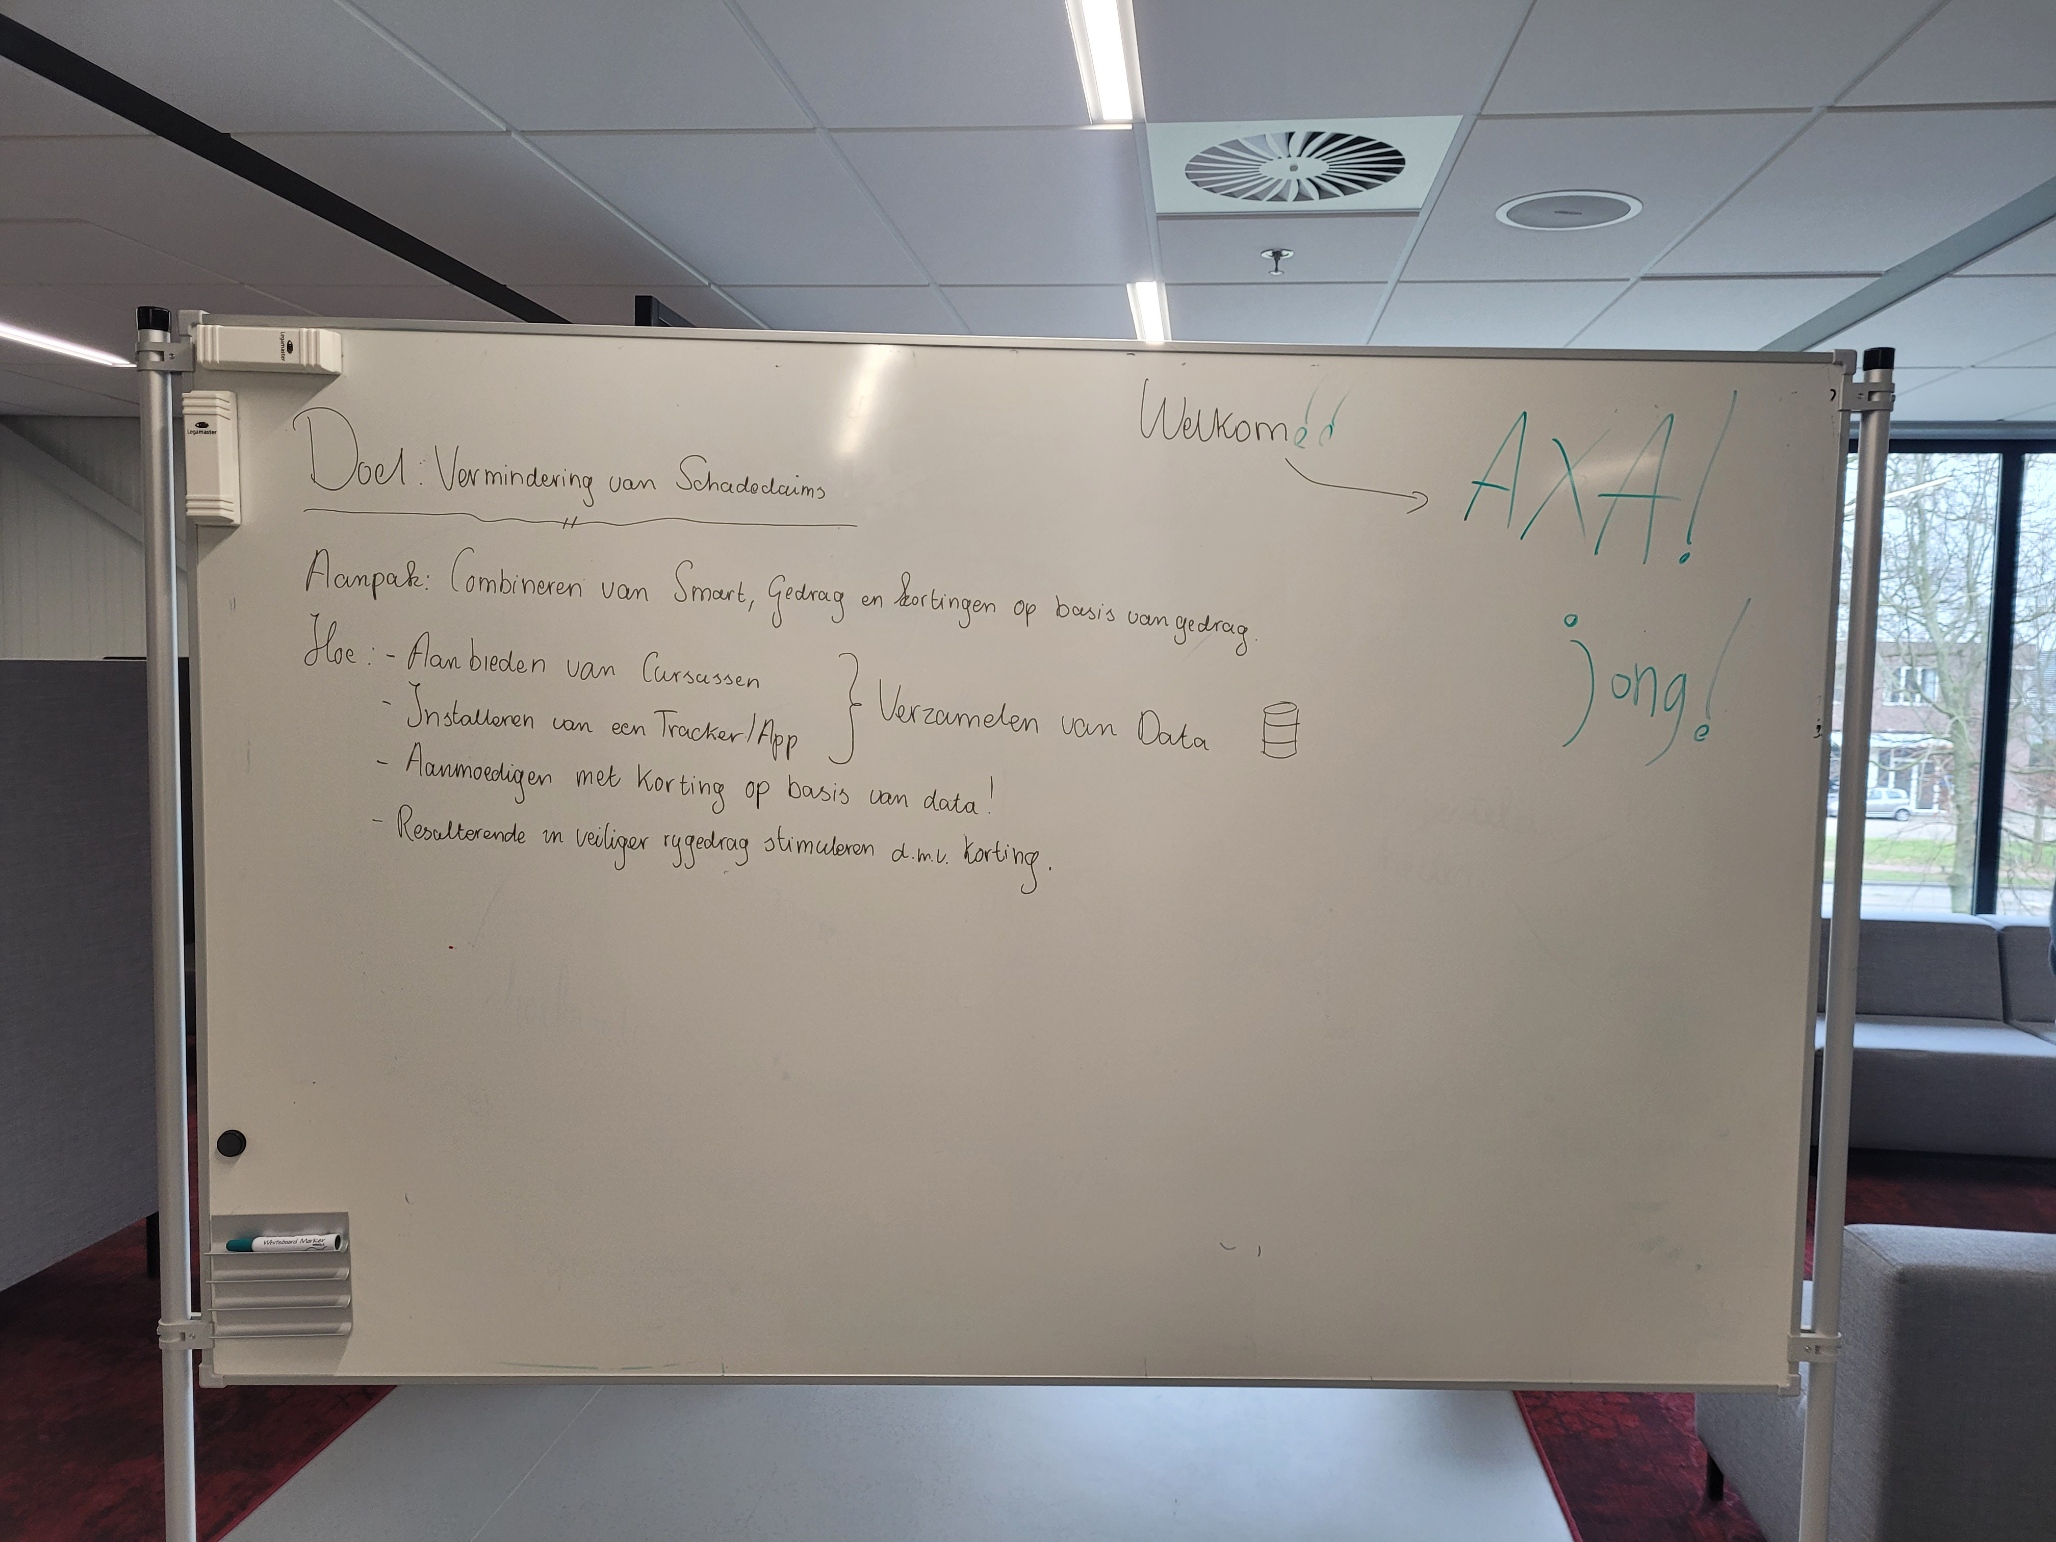 Welkom!!
AXA!
jong!
Doel: Vermindering van Schadeclaims
Aanpak: Combineren van Smart, Gedrag en kortingen op basis van gedrag.
Hoe: - Aanbieden van Cursussen
- Installeren van een Tracker/App
} Verzamelen van Data
- Aanmoedigen met korting op basis van data!
- Resulterende in veiliger rijgedrag stimuleren d.m.v. korting.
Legamaster
Legamaster
Whiteboard Marker